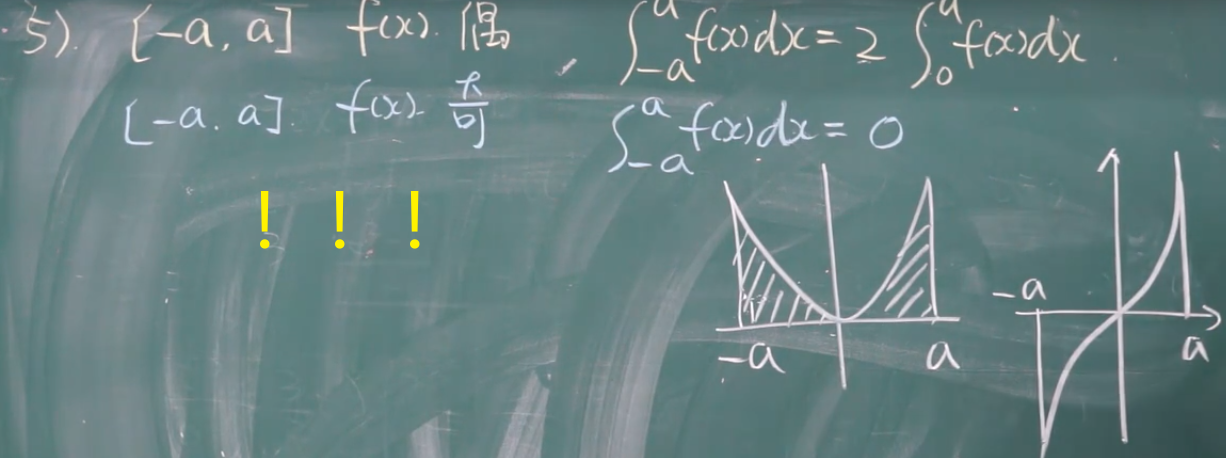 5). [-a, a] f(x). 偶, ∫_{-a}^{a} f(x)dx = 2 ∫_{0}^{a} f(x)dx.
[-a, a]. f(x). 奇 ∫_{-a}^{a} f(x)dx = 0
! ! !
-a a
-a a